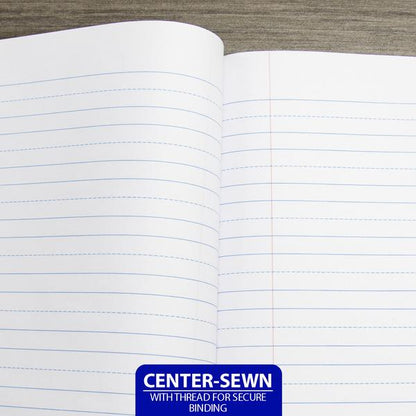 CENTER-SEWN
WITH THREAD FOR SECURE
BINDING